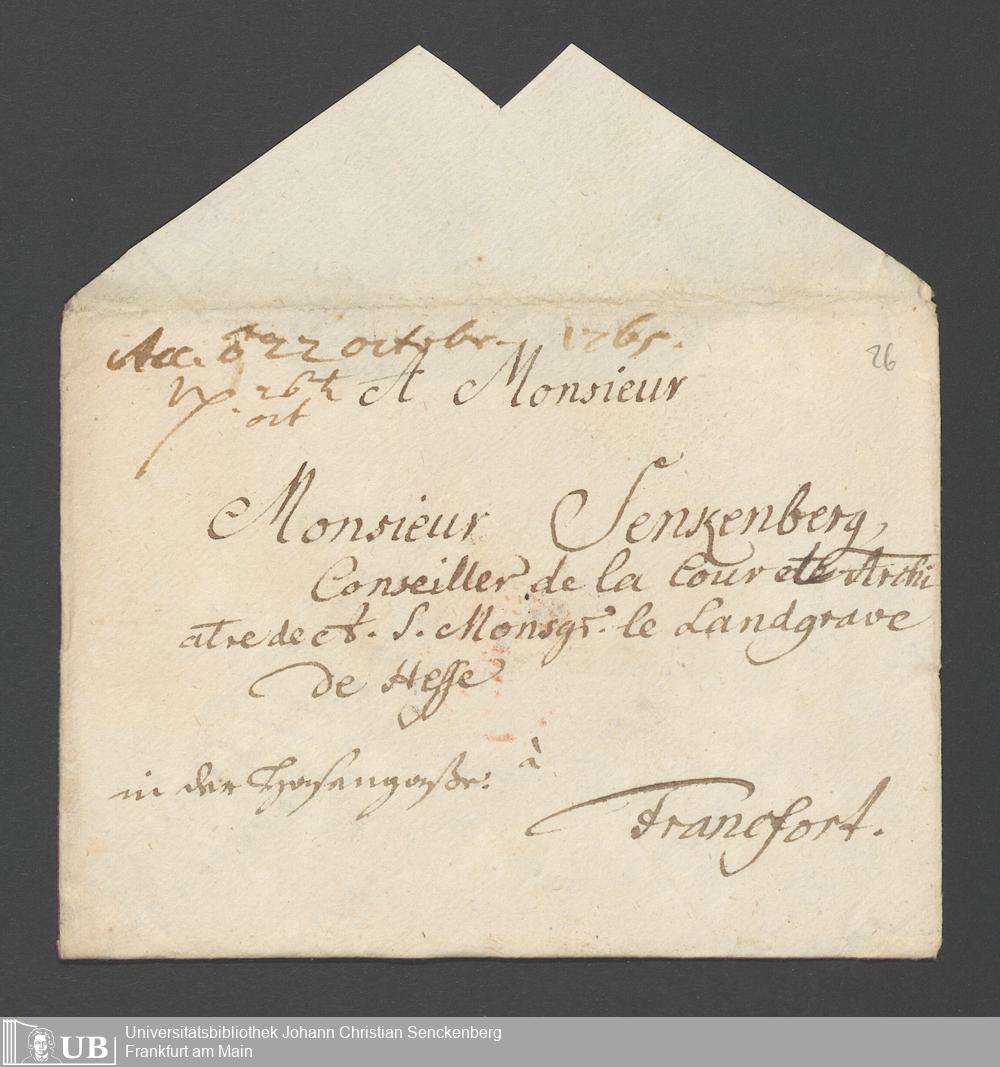 Acc. d 22 octobr. 1765.
26
26th
oct
A Monsieur
Monsieur Senkenberg,
Conseiller de la Cour et Archi
atre de A. S. Monsgr. le Landgrave
de Hesse
à
in der Hasengasse:
Francfort.
UB
Universitätsbibliothek Johann Christian Senckenberg
Frankfurt am Main